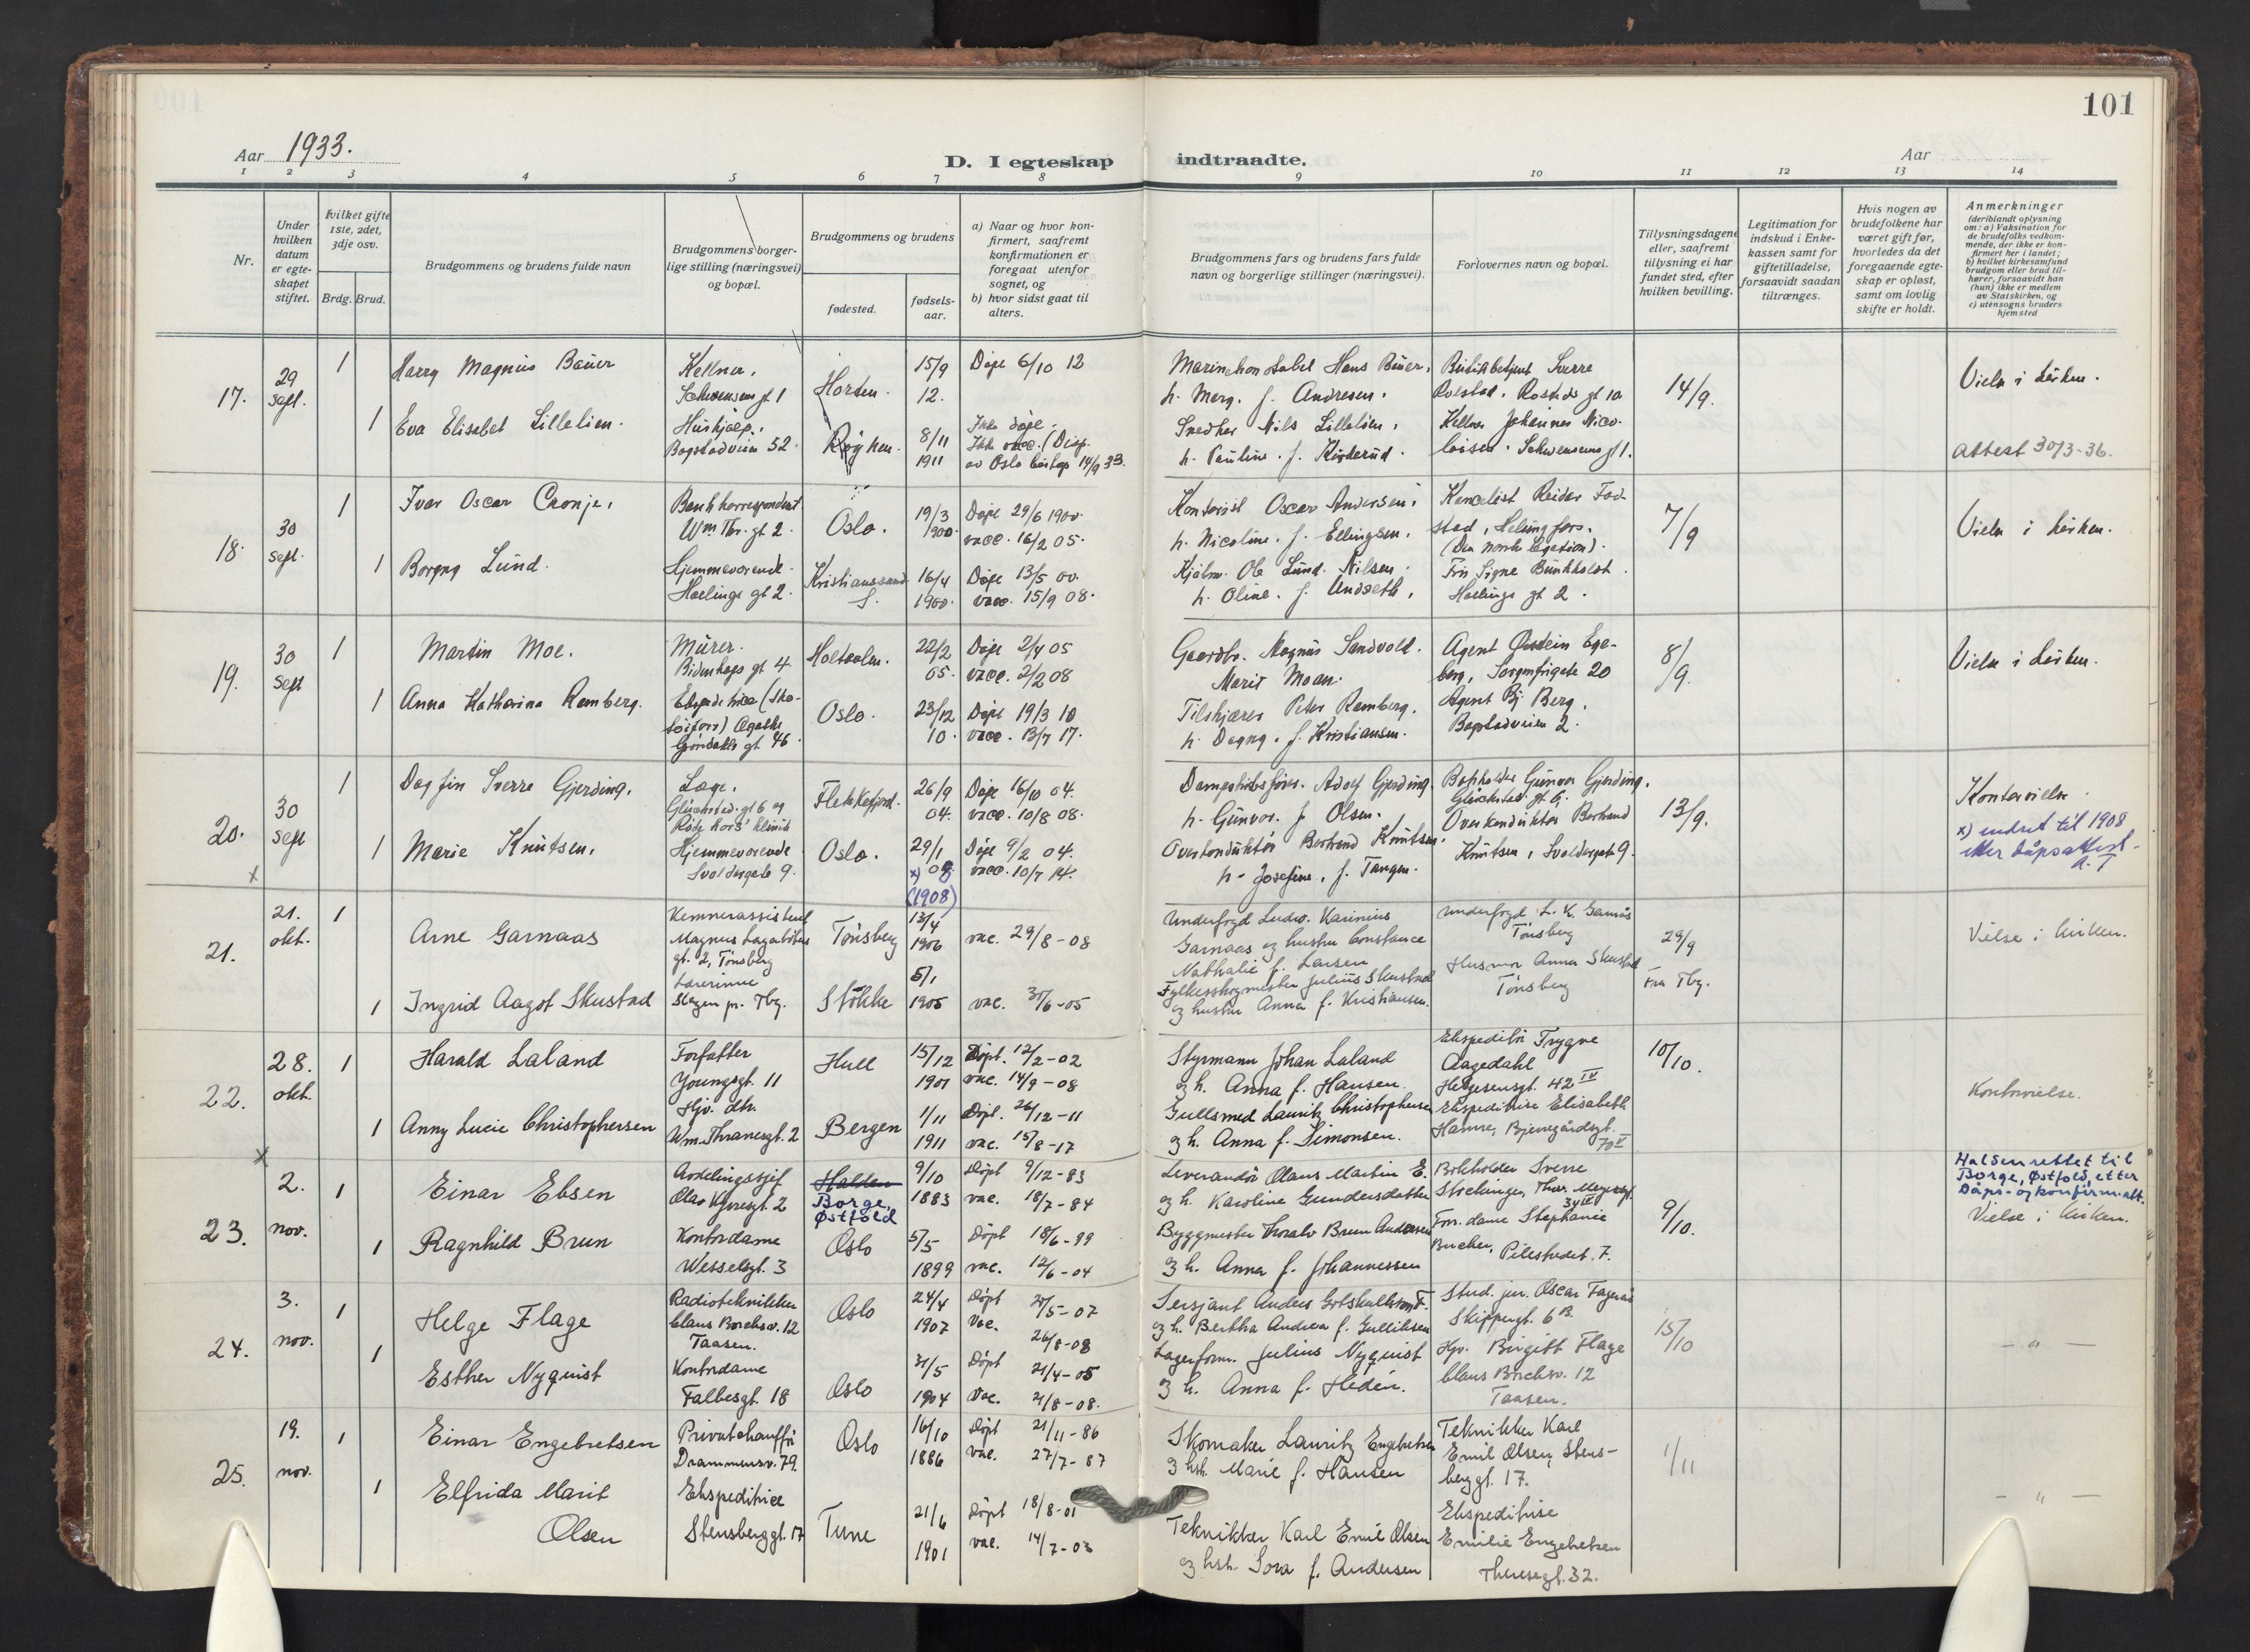 101
Aar 1933.
D. I egteskap indtraadte.
Aar
1 2 3 4 5 6 7 8 9 10 11 12 13 14
Nr.
Under hvilken datum er egteskapet stiftet.
Hvilket gifte 1ste, 2det, 3dje osv.
Brdg. Brud.
Brudgommens og brudens fulde navn
Brudgommens borgerlige stilling (næringsvei) og bopæl.
Brudgommens og brudens
fødested.
fødsels-aar.
a) Naar og hvor konfirmert, saafremt konfirmationen er foregaat utenfor sognet, og
b) hvor sidst gaat til alters.
Brudgommens fars og brudens fars fulde navn og borgerlige stillinger (næringsvei).
Forlovernes navn og bopæl.
Tillysningsdagene eller, saafremt tillysning ei har fundet sted, efter hvilken bevilling.
Legitimation for indskud i Enkekassen samt for giftetilladelse, forsaavidt saadan tiltrænges.
Hvis nogen av brudefolkene har været gift før, hvorledes da det foregaaende egteskap er opløst, samt om lovlig skifte er holdt.
Anmerkninger
(deriblandt oplysning om: a) Vaksination for de brudefolks vedkommende, der ikke er konfirmert her i landet; b) hvilket kirkesamfund brudgom eller brud tilhører, forsaavidt han (hun) ikke er medlem av Statskirken, og c) utensogns bruders hjemsted
17. 29 sept. 1 Harry Magnus Bauer
Kellner. Schwensens gt 1
Horten. 15/9 12. Døpt 6/10 12
h. Marg. f. Andresen.
14/9.
Vielse i kirken.
1 Eva Elisabet Lillelien.
Hushjælp. Bogstadveien 52.
Røyken. 8/11 1911
Ikke døpt. Ikke vacc. (Disp. av Oslo biskop 14/9 33.
Nils Lillelien.
Kellner Johannes Nicolaisen. Schwensens gt 1.
attest 30/3-36.
18. 30 sept. 1 Ivar Oscar Cronje.
Bankkorrespondent Wm Thr. gt 2.
Oslo. 19/3 1900. Døpt 29/6 1900. vacc. 16/2 05.
Kontorist Oscar Andersen.
h. Nicoline. f. Ellingsen.
Helsingfors. (Den norske Legation).
7/9
Vielse i kirken.
1 Borgny Lund.
Hjemmeværende. gt 2.
Kristianssund 16/4 1900. Døpt 13/5 00. vacc. 15/9 08.
Ole Lund Nilsen.
h. Oline. f. Undseth.
Frk Signe Bunkholdt. gt 2.
19. 30 sept 1 Martin Moe.
Murer. Bidenkaps gt 4.
Holtaalen. 22/2 05. Døpt 2/4 05 vacc. 2/2 08
Gaardbr. Magnus Sandvold.
Marit Moan.
Agent Øistein Egeberg, Sorgenfrigate 20
8/9.
Vielse i kirken.
1 Anna Katharina Ramberg.
Ekspeditrice Agathe Grøndahls gt 46.
Oslo. 23/12 10. Døpt 19/3 10 vacc. 13/7 17.
Tilskjærer Peter Ramberg.
h. Dagny. f. Kristiansen.
Agent Bj. Berg. Bogstadveien 2.
20. 30 sept 1 Dagfin Sverre Gjerding.
Læge. Glückstad. gt 6 og Røde Kors' klinik
Flekkefjord. 26/9 04. Døpt 16/10 04. vacc. 10/8 08.
Dampskibsfører. Adolf Gjerding.
h. Gunvor. f. Olsen.
Gunvor Gjerding. Glückstad. gt 6.
13/9.
Kontorvielse.
1 Marie Knutsen.
Hjemmeværende Svoldergate 9.
Oslo. 29/1 x) 08 (1908) Døpt 9/2 04. vacc. 10/7 14.
Overkonduktør Bertrand Knutsen.
h. Josefine. f. Tangen.
Overkonduktør Bertrand Knutsen, Svoldergate 9.
x) endret til 1908 etter dåpsattest.
21. 21. okt. 1 Arne Garnaas
Kemnerassistent Magnus Lagabøtes gt. 2, Tønsberg
Tønsberg 13/4 1906 vac. 29/8-08
Underfogd Ludv. Karinius Garnaas og hustru Constance Nathalie f. Larsen
Underfogd L. K. Garnås Tønsberg
29/9 Fra Tbg.
Vielse i kirken.
1 Ingrid Aagot Skustad
Lærerinne Slagen pr. Tbg.
Stokke 5/1 1905 vac. 30/6-05
Fylkesskogmester Julius Skustad
og hustru Anna f. Kristiansen.
Husmor Anna Skustad Tønsberg
22. 28. okt. 1 Harald Laland
Forfatter Youngsgt. 11
Hull 15/12 1901 Døpt. 12/2-02 vac. 14/9-08
Styrmann Johan Laland
og h. Anna f. Hansen.
Ekspeditør Trygve Aagedahl Helgesensgt. 42 IV
10/10.
Kontorvielse.
1 Anny Lucie Christophersen
Hjv. dtr. Wm. Thranesgt. 2
Bergen 1/11 1911 Døpt. 26/12-11 vac. 15/8-17
Gullsmed Lauritz Christophersen
og h. Anna f. Simonsen.
Ekspeditrise Elisabeth Hamre, Bjerregårdsgt. 70 II
23. 2. nov. 1 Einar Ebsen
Avdelingssjef Olav Kyrresgt. 2
Halden Borge, Østfold
9/10 1883 Døpt 9/12-83 vac. 18/7-84
Leverandør Olaus Martin E.
og h. Karoline Gundersdatter
Bokholder Sverre
9/10.
Halden rettet til Borge, Østfold, etter Dåps- og konfirm.att.
Vielse i kirken.
1 Ragnhild Brun
Kontordame Wesselsgt. 3
Oslo 5/5 1899 Døpt 18/6-99 vac. 12/6-04
Byggmester Thoralv Brun Andersen
og h. Anna f. Johannessen
Forr. dame Stephanie Bucher, Pilestredet. 7.
24. 3. nov. 1 Helge Flage
Radiotekniker Claus Borchsv. 12 Taasen.
Oslo 24/4 1907 Døpt 21/5-07 Vac. 26/8-08
Sersjant Anders Gotskalkson F.
og h. Bertha Andrea f. Gulliksen
Stud. jur. Oscar Fagerås Skippergt. 6 B.
15/10
— " —
1 Esther Nyquist
Kontordame Falbesgt. 18
Oslo 31/5 1904 Døpt 21/4-05 Vac. 21/8-08.
Lagerform. Julius Nyquist
og h. Anna f. Hedén.
Hjv. Birgitt Flage Claus Borchsv. 12 Taasen.
25. 19. nov. 1 Einar Engebretsen
Privatchauffør Drammensv. 79.
Oslo 16/10 1886 Døpt 21/11-86 vac. 27/7-87
Skomaker Lauritz Engebretsen
og hst. Marie f. Hansen
Tekniker Karl Emil Olsen, Stensberggt. 17.
1/11
— " —
1 Elfrida Marit Olsen
Ekspeditrice Stensberggt. 17
Tune 21/6 1901 Døpt 18/8-01 vac. 14/7-03
Tekniker Karl Emil Olsen
og hst. Lora f. Andersen
Ekspeditrise Emilie Engebretsen Theresegt. 32.